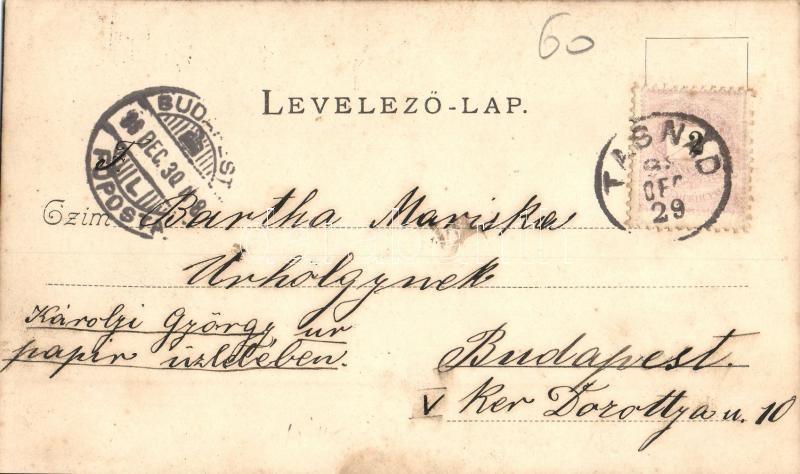 60
LEVELEZŐ-LAP.
BUDAPEST
DEC. 30
FŐPOSTA
TASNÁD
DEC
29
2
T.
Czím Bartha Mariska
Urhölgynek
Károlyi György ur
papir üzletében.
Budapest.
V Ker Dorottya u. 10